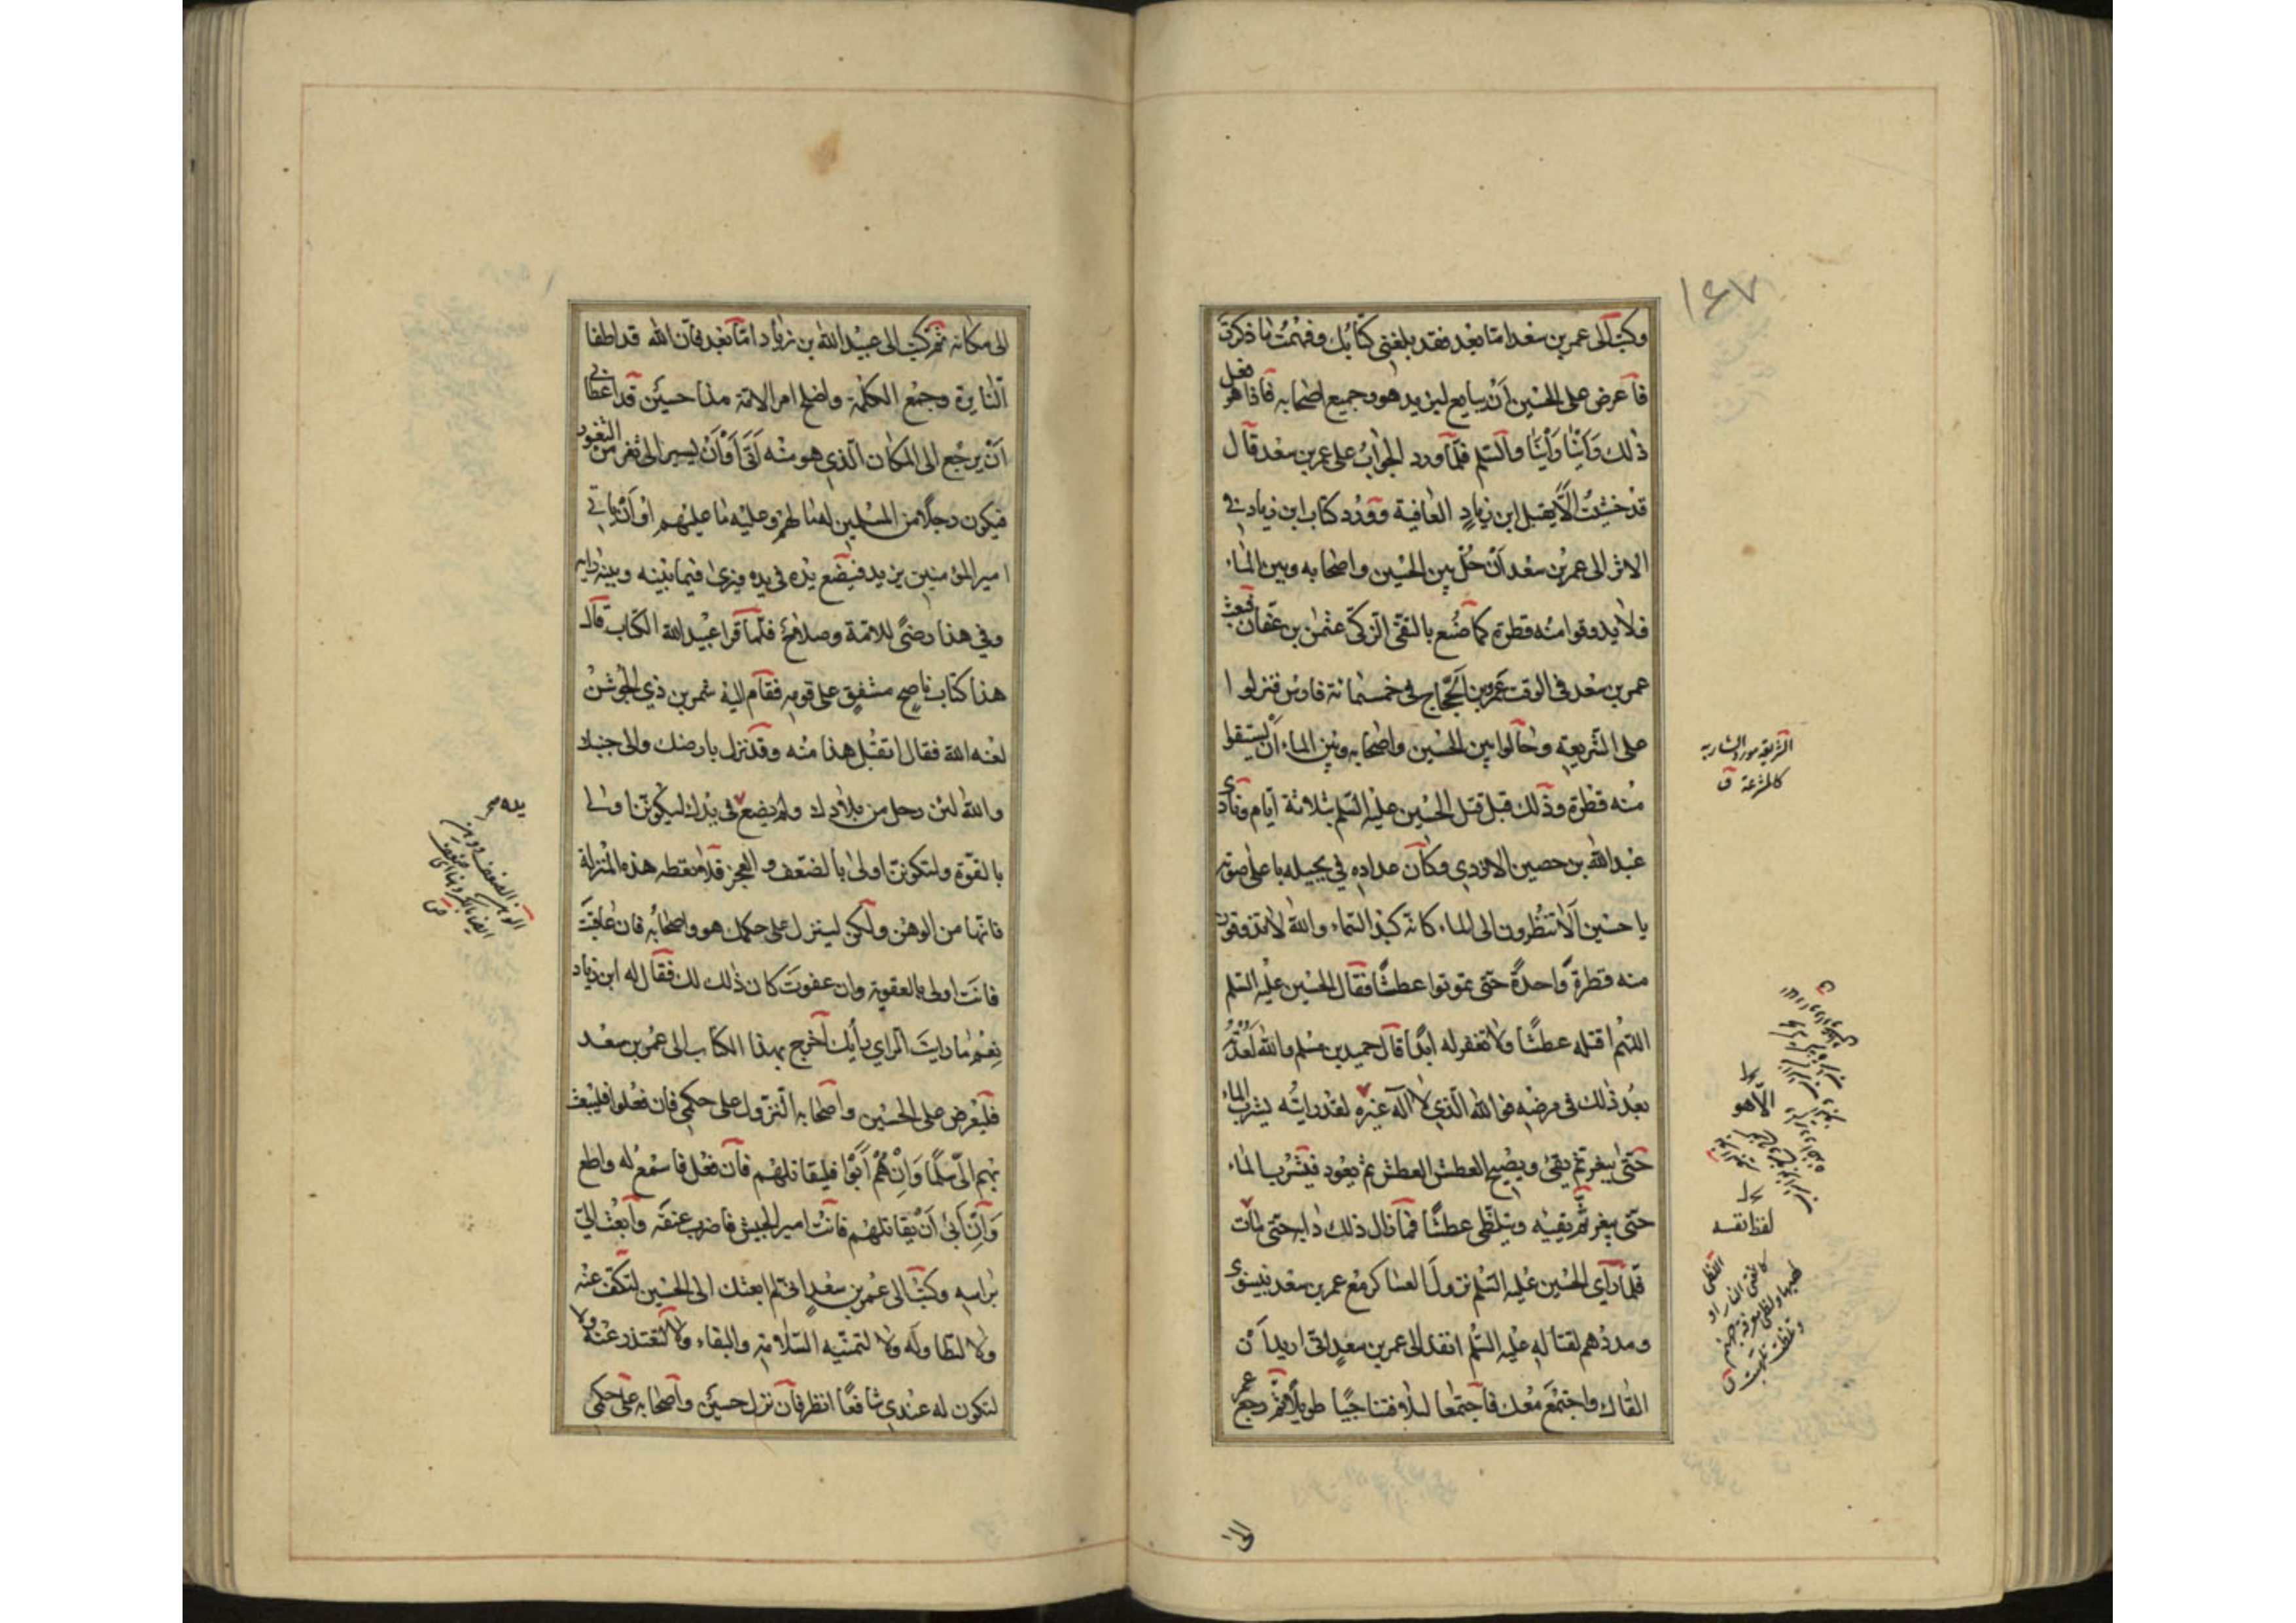 ۱۶۷
وكتب الى عمر بن سعد اما بعد فقد بلغنى كتابك وفهمت ما ذكرت
فاعرض على الحسين ان يبايع ليزيد هو وجميع اصحابه فاذا هو فعل
ذلك رَأَيْنا رَأْيَنا والسلم فلما ورد الجواب على عمر بن سعد قال
قد خشيت الّا يقبل ابن زياد العافية وورد كتاب ابن زياد في
الاثر الى عمر بن سعد ان حُلْ بين الحسين واصحابه وبين الماء
فلا يذوقوا منه قطرة كما صُنع بالتقى الزكى عثمن بن عفان فبعث
عمر بن سعد فى الوقت عمرو بن الحجاج فى خمسمائة فارس فنزلوا
على الشريعة وحالوا بين الحسين واصحابه وبين الماء ان يستقوا
منه قطرة وذلك قبل قتل الحسين عليه السلم بثلاثة ايام ونادى
عبد الله بن حصين الازدي وكان عداده في بجيله باعلى صوته
يا حسين ألا تنظرون الى الماء كانه كبد السماء والله لا تذوقون
منه قطرة واحدة حتى تموتوا عطشا فقال الحسين عليه السلم
اللهم اقتله عطشًا ولا تغفر له ابدًا قال حميد بن مسلم والله لعدته
بعد ذلك فى مرضه فوالله الذي لا اله غيره لقد رايته يشرب الماء
حتى يبغر ثم يقئ ويصيح العطش العطش ثم يعود فيشرب الماء
حتى يبغر ثم يقيئه ويتلظى عطشًا فما زال ذلك دابه حتى مات
فلما راي الحسين عليه السلم نزول العساكر مع عمر بن سعد بنينوى
ومددهم لقتاله عليه السلم انفذ الى عمر بن سعد انى اريد ان
القاك واجتمع معك فاجتمعا ليلًا فتناجيا طويلًا ثم رجع عمر
الشريعة مورد الشاربة
كالمشرعة ق
الّا هو
لفظ نفسه
الى
الى مكانه ثم كتب الى عبيد الله بن زياد اما بعد فان الله قد اطفا
النايرة وجمع الكلمة واصلح امر الامة هذا حسين قد اعطانى
ان يرجع الى المكان الذي هو منه اتى او ان يسير الى ثغر من الثغور
فيكون رجلا من المسلمين له ما لهم وعليه ما عليهم او ان ياتى
امير المؤمنين يزيد فيضع يده فى يده فيرى فيما بينه وبينه رايه
وفى هذا رضًى للامة وصلاح فلما قرا عبيد الله الكتاب قال
هذا كتاب ناصح مشفق على قومه فقام اليه شمر بن ذي الجوشن
لعنه الله فقال اتقبل هذا منه وقد نزل بارضك والى جنبك
والله لئن رحل من بلادك ولم يضع فى يدك ليكونن اولى
بالقوّة ولتكونن اولى بالضعف والعجز فلا تعطه هذه المنزلة
فانها من الوهن ولكن لينزل على حكمك هو واصحابه فان عاقبت
فانت اولى بالعقوبة وان عفوت كان ذلك لك فقال له ابن زياد
نعم ما رايت الراي رأيك اخرج بهذا الكتاب الى عمر بن سعد
فليعرض على الحسين واصحابه النزول على حكمي فان فعلوا فليبعث
بهم الىّ سلمًا وان هم أبوا فليقاتلهم فان فعل فاسمع له واطع
وان ابى ان يقاتلهم فانت امير الجيش فاضرب عنقه وابعث الىّ
براسه وكتب الى عمر بن سعد انى لم ابعثك الى الحسين لتكف عنه
ولا لتطاوله ولا لتمنيه السلامة والبقاء ولا لتعتذر عنه ولا
لتكون له عندي شافعًا انظر فان نزل حسين واصحابه على حكمي
يده صح